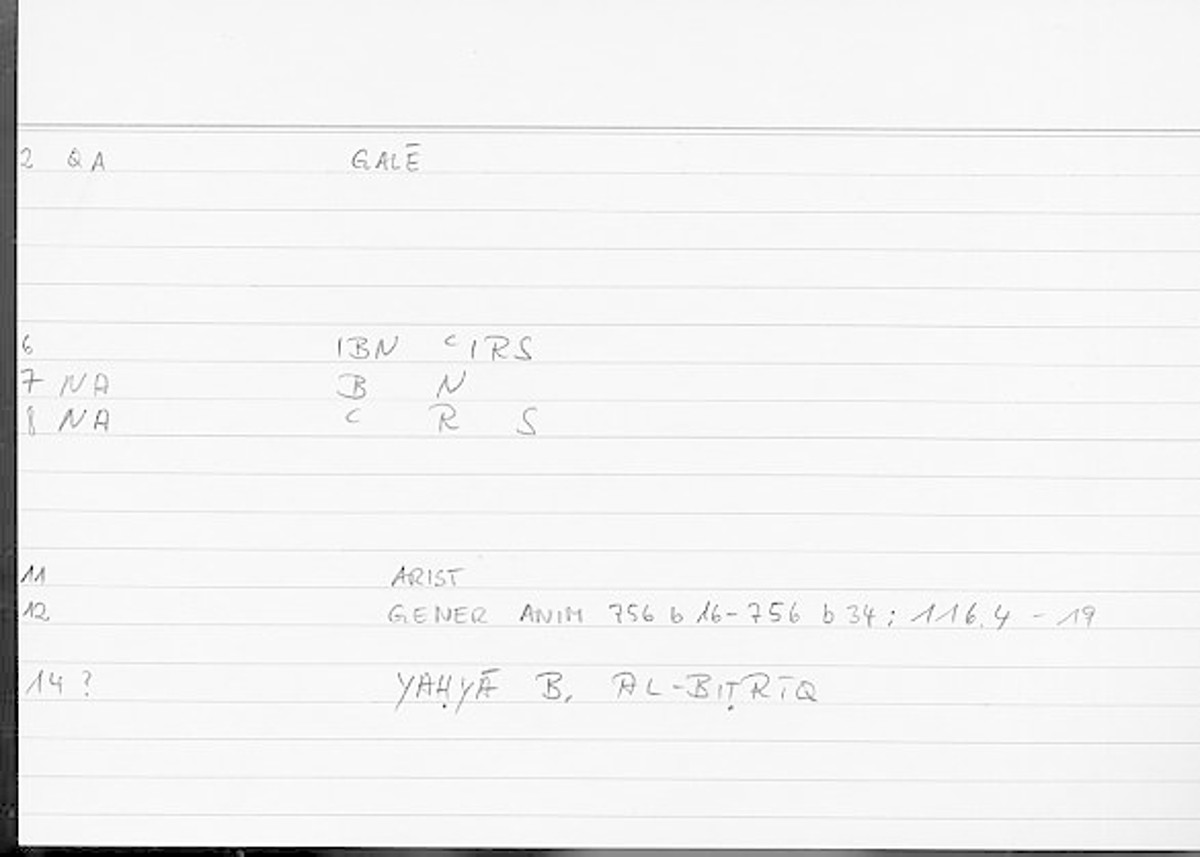 2 QA GALĒ
6 IBN ʿIRS
7 NA B N
8 NA ʿ R S
11 ARIST
12 GENER ANIM 756 b 16-756 b 34; 116.4 - 19
14 ? YAḤYĀ B. AL-BIṬRĪQ